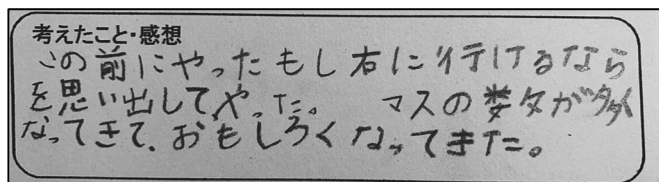 考えたこと・感想
この前にやったもし右に行けるなら
を思い出してやった。 マスの数が多く
なってきて、おもしろくなってきた。